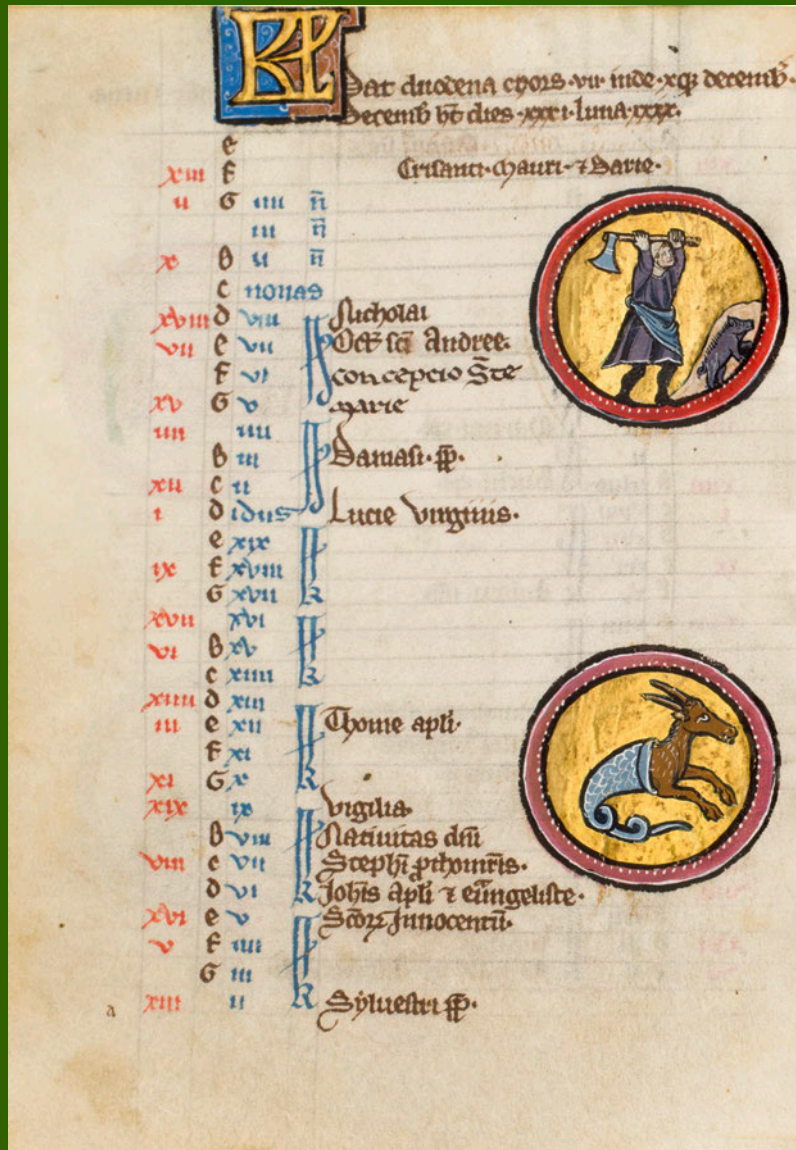 KL
Dat duodena cohors vii inde xq; decemb̃.
Decemb ht dies xxxi luna xxx.
e
xiii f Crisanti Mauri ⁊ Darie.
ii G iiii n̄
iii n̄
x B ii n̄
c nonas
xviii d viii Nicholai
vii e vii Oct̃ sc̃i Andree.
f vi Concepcio S̄te
xv G v Marie
iiii iiii
B iii Damasi pp̄.
xii c ii
i d idus Lucie virginis.
e xix
ix f xviii
G xvii k
xvii xvi
vi B xv
c xiiii k
xiiii d xiii
iii e xii Thome apli.
f xi
xi G x k
xix ix vigilia
B viii Nativitas dn̄i
viii c vii Steph̄i ꝓthom̃ris.
d vi k Joh̄is apli ⁊ eũngeliste.
xvi e v Sc̄oꝝ Innocentũ.
v f iiii
G iii
a xiii ii k Sylvestri pp̄.